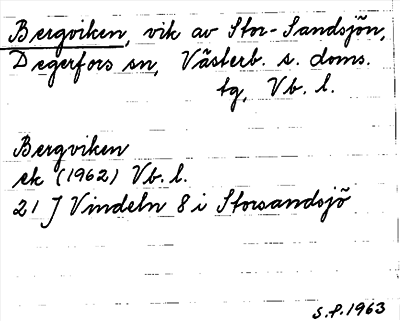 Bergviken, vik av Stor-Sandsjön,
Degerfors sn, Västerb. s. doms.
tg, Vb. l.
Bergviken
ek (1962) Vb. l.
21 J Vindeln 8 i Storsandsjö
S.P. 1963